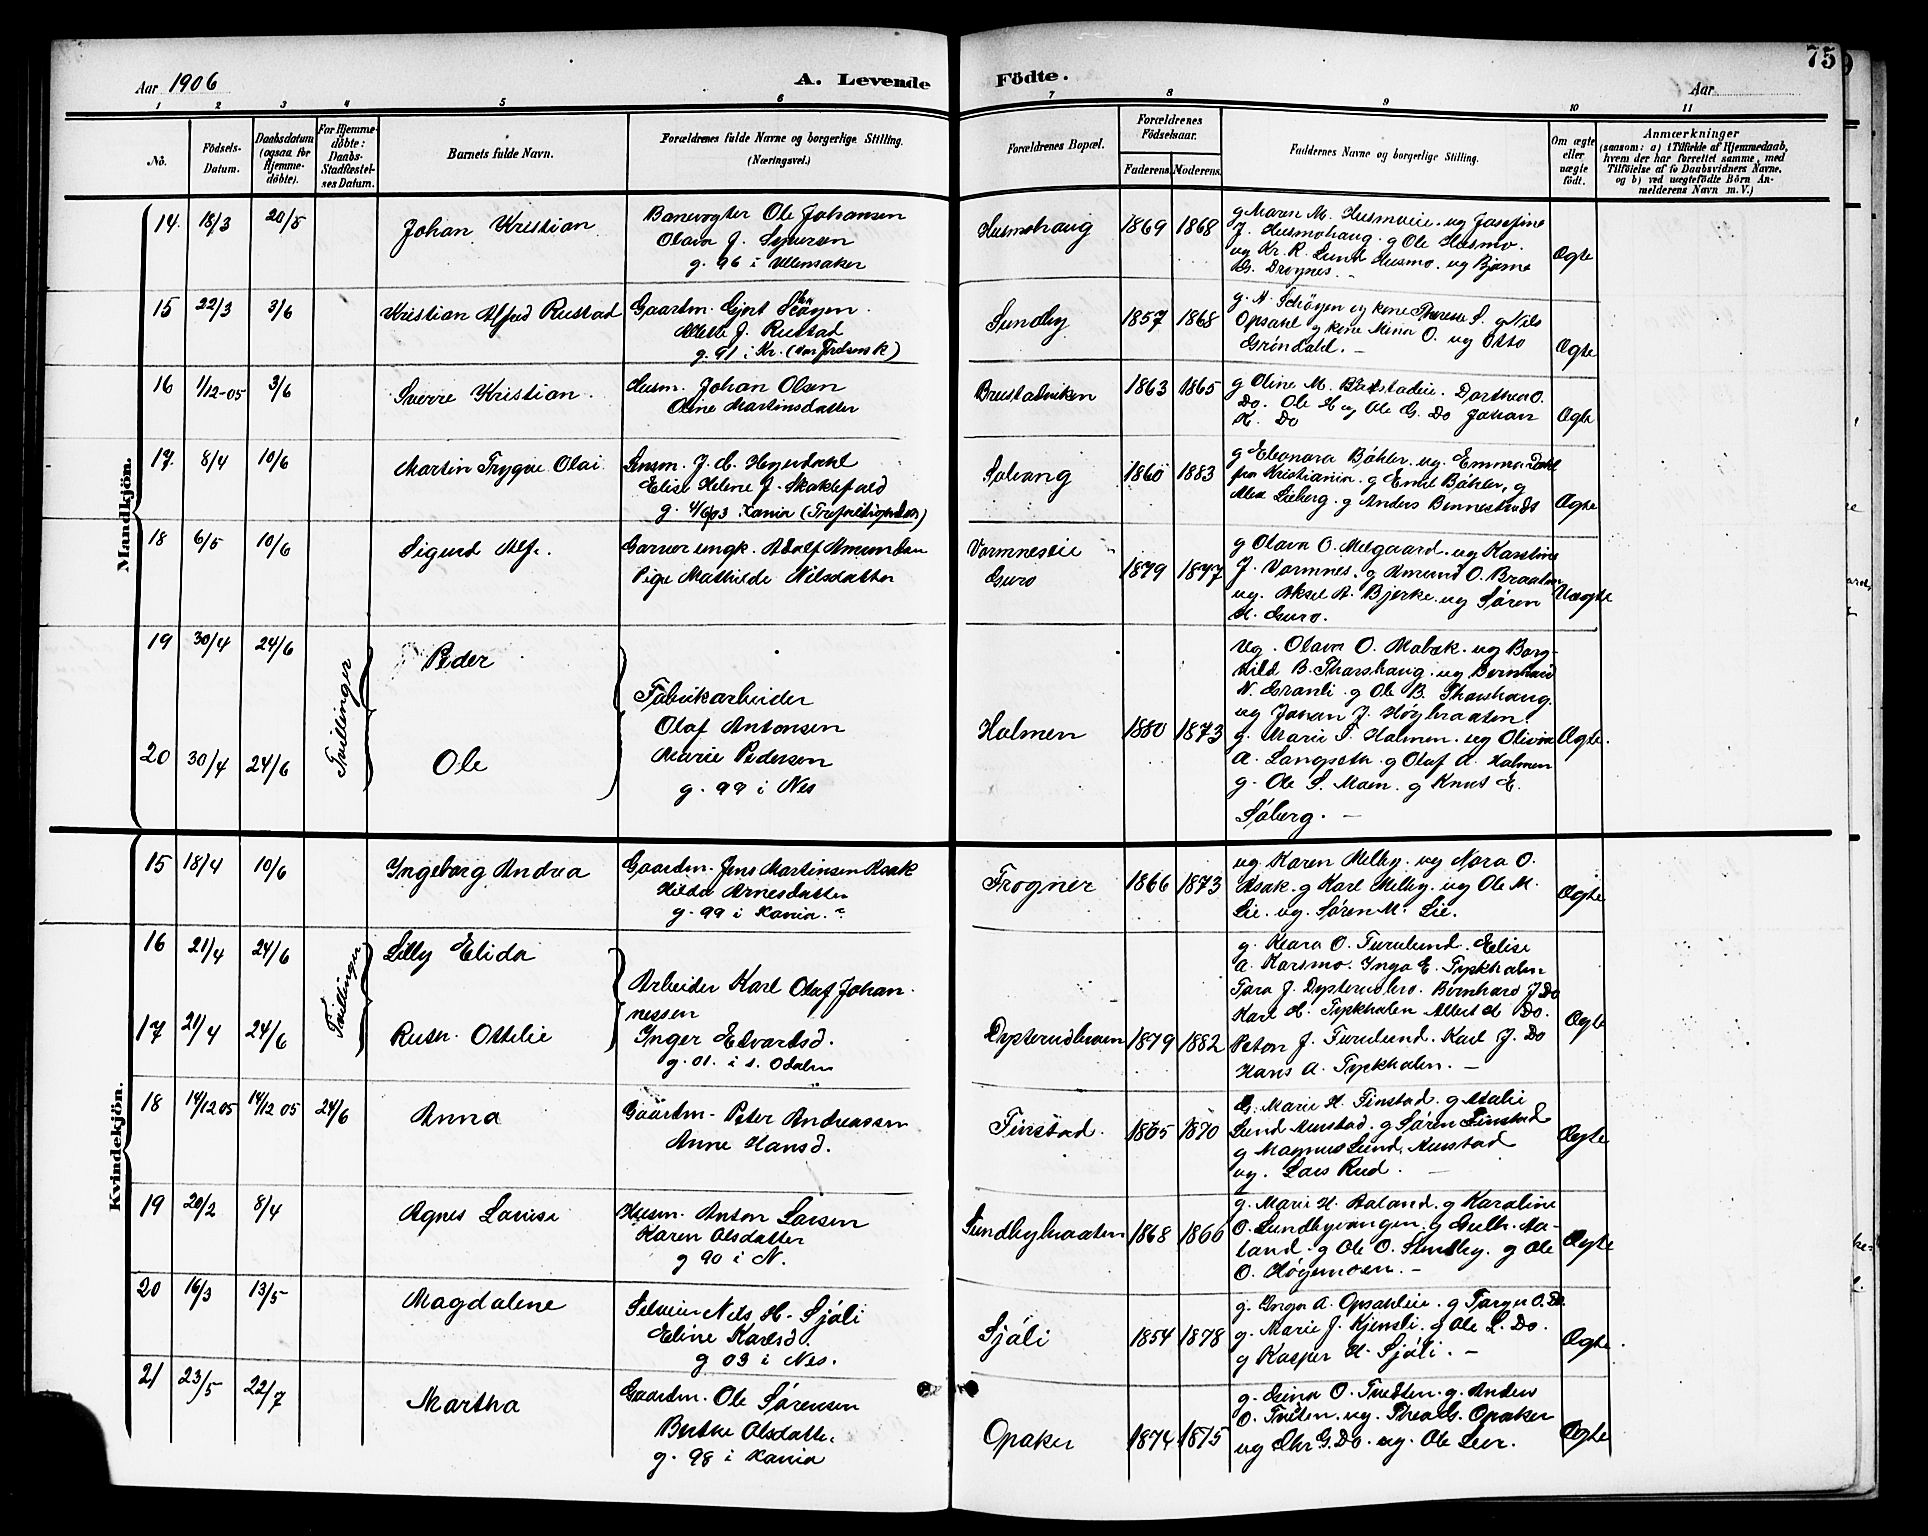 75
Aar 1906
A. Levende Födte.
Aar
1 2 3 4 5 6 7 8 9 10 11
No.
Födsels-
Datum.
Daabsdatum
(ogsaa for
Hjemme-
döbte).
For Hjemme-
döbte:
Daabs-
Stadfæstel-
ses Datum.
Barnets fulde Navn.
Forældrenes fulde Navne og borgerlige Stilling.
(Næringsvei.)
Forældrenes Bopæl.
Forældrenes
Födselsaar.
Faderens. Moderens.
Faddernes Navne og borgerlige Stilling.
Om ægte
eller
uægte
født.
Anmærkninger
(saasom: a) i Tilfælde af Hjemmedaab,
hvem der har forrettet samme, med
Tilföielse af to Daabsvidners Navne,
og b) ved uægtefödte Börn An-
melderens Navn m. V.)
Mandkjön.
14. 18/3 20/5 Johan Kristian
Banevogter Ole Johansen
Olava J. Syversen
g. 96 i Ullensaker
Husmohaug 1869 1868
g Maren M. Husmoeie. ug Josefine
J. Husmohaug. g Ole Husmo.
ug Kr. R. Lund Husmo. ug Bjarne
G. Drognes. –
Ægte
15 22/3 3/6 Kristian Alfred Rustad
Gaardm. Gjert Schøyen.
J. Rustad
g. 91 i Kr. (Vor Frelsers K)
Sundby 1857 1868
g. N. Schøyen og kone Therese S. g Nils
Opsahl og kone Mina O. ug Otto
Gröndahl. –
Ægte
16 1/12-05 3/6 Sverre Kristian.
Husm. Johan Olsen
Oline Martinsdatter
Brustadviken 1863 1865
g Oline M. Dorthea O.
Do. Ole H og Ole G. Do Johan
K. Do
Ægte
17. 8/4 10/6 Martin Trygve Olai.
Lensm. J. C. Heyerdahl
Elise Helene J. Skaklefald
g. 4/6 03 Kania (Trefoldigheden)
Solvang 1860 1883
g Eleonora Bøhler. ug. Emma Dahl
fra Kristiania. g Emil Bøhler, g
Alex Sieberg. g Anders Bonnestrudt
Ægte
18 6/5 10/6 Sigurd Alf.
Garver ungk. Adolf Amundsen
Pige Mathilde Nilsdatter
Vormneseie
Guro
1879 1877
g Olava O. Melgaard. ug Karstine
J. Vormnes. g Amund O. Braaten
ug. Aksel A. Bjerke. ug Søren
H. Guro.
Uægte
19 30/4 24/6 Peder
Tvillinger
20 30/4 24/6 Ole
Fabrikarbeider
Olaf Antonsen
Marie Pedersen
g. 99 i Nes
Holmen 1880 1873
ug. Olava O. Mobæk. ug Borg-
hild B. Thorshaug. ug Bernhard
N. Granli. g Ole B. Thorshaug.
ug Johan J. Høgbraaten.
g. Marie T. Holmen. ug Olivia
A. Langseth. g Olaf A. Holmen
g. Ole S. Moen. g Knut E.
Søberg. –
Ægte.
Kvindekjön.
15 18/4 10/6 Ingeborg Andrea
Gaardm. Jens Martinsen Asak
Hilda Arnesdatter
g. 99 i Kania.
Frogner 1866 1873
ug Karen Melby. ug Nora O.
Asak. g Karl Melby. ug Ole M.
Lie. ug. Søren M. Lie.
Ægte
16 21/4 24/6 Lilly Elida
Tvillinger
17 21/4 24/6 Ruth Ottilie
Arbeider Karl Olaf Johan-
nessen
Inger Edvartsd.
g. 01. i s. Odalen
Dysterudbraaten 1879 1882
g. Klara O. Furulund. Elise
A. Karsmo. Inga E. Tykhalen
Tora J. Bernhard J Do
Karl H. Tykhalen Albert H Do.
Peton J. Furulund. Karl J. Do
Hans A. Tykhalen. –
Ægte
18 14/12 05 14/12 05 24/6 Anna
Gaardm. Peter Andreassen
Anne Hansd.
Finstad. 1865 1870
G. Marie H. Finstad. g Atalie
Lund Aurstad. g Søren Finstad
g Magnus Lund, Aurstad
ug. Lars Rud. –
Ægte
19 20/2 8/4 Agnes Lovise
Husm. Anton Larsen
Karen Olsdatter
g 90 i N.
Sundbybraaten 1868 1866
g. Marie H. Aaland. g Karoline
O. Sundbyvangen. g Gulb. Aa-
land. g Ole O. Sundby. g Ole
O. Høgemoen. –
Ægte
20 16/3 13/5 Magdalene
Selveier Nils H. Sjøli
Eline Karlsd.
g 03 i Nes.
Sjøli 1854 1878
g. Inga A. Opsahleie. g Torger O. Do.
g. Marie J. Kjensli. g Ole L. Do.
g Kasper H. Sjøli. –
Ægte.
21 23/5 22/7 Martha
Gaardm. Ole Sørensen
Berthe Olsdatter
g. 98 i Kania
Opaker 1874 1875
g. Gina O. Tveten. g. Anders
O. Tveten. ug. Thea G. Opaker
ug Chr G. Do. ug. Ole Leer.
Ægte